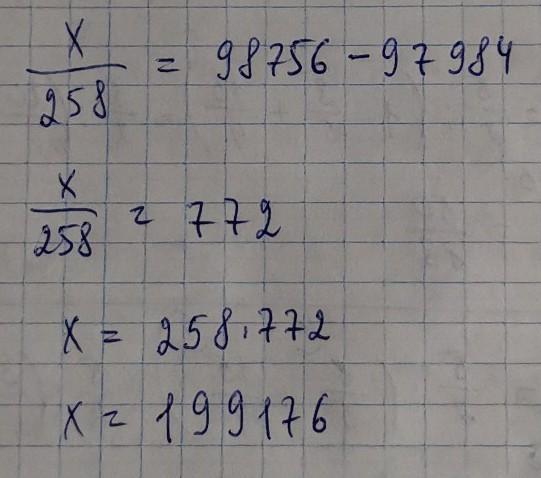 x/258 = 98756 - 97984
x/258 = 772
x = 258 · 772
x = 199176